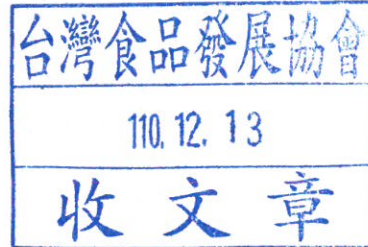 台灣食品發展協會
110. 12. 13
收文章